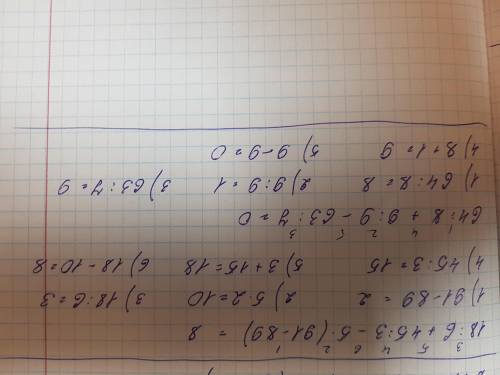 3 5 4 6 2 1
18:6+45:3-5·(91-89) = 8
1) 91-89 = 2 2) 5·2=10 3) 18:6=3
4) 45:3=15 5) 3+15=18 6) 18-10=8
1 4 2 5 3
64:8 + 9:9 - 63:7 = 0
1) 64:8=8 2) 9:9=1 3) 63:7=9
4) 8+1=9 5) 9-9=0